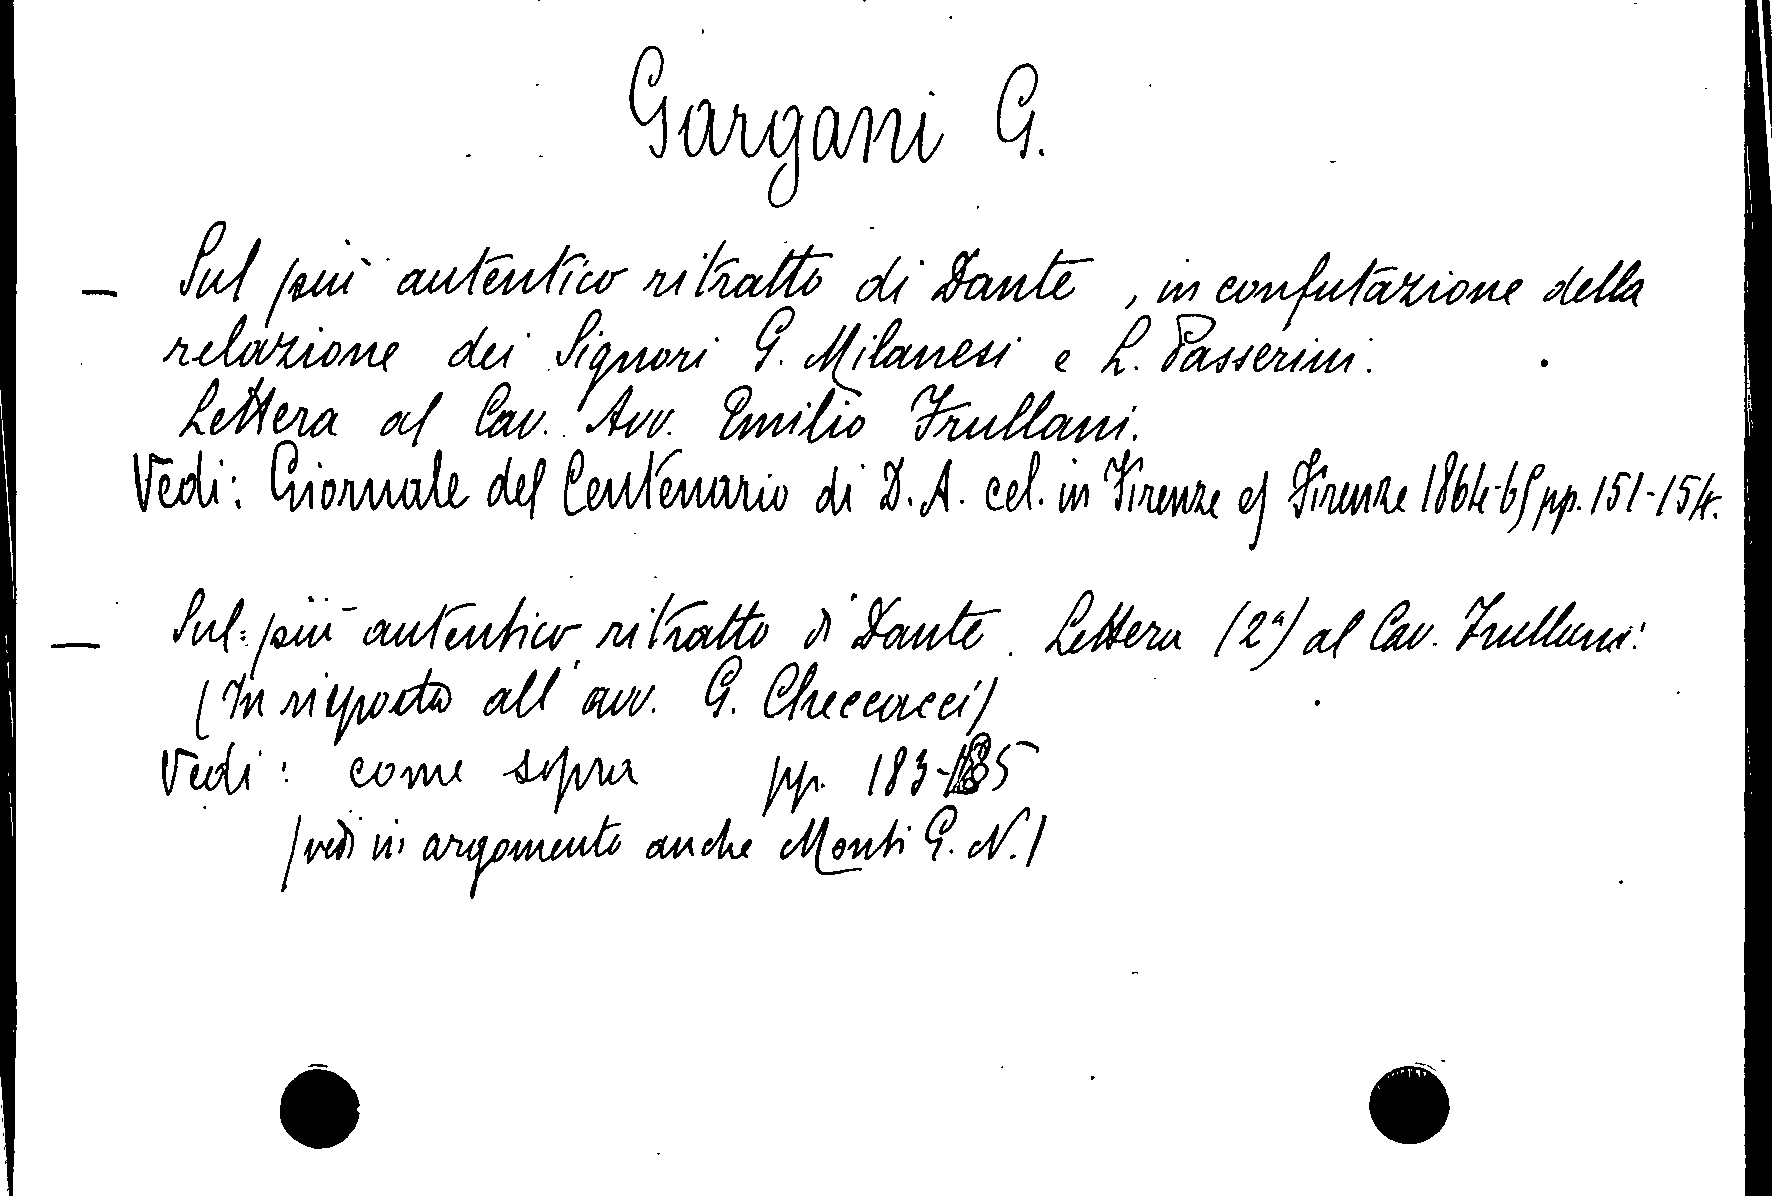 Gargani G.
— Sul più autentico ritratto di Dante, in confutazione della
relazione dei Signori G. Milanesi e L. Passerini.
Lettera al Cav. Avv. Emilio Frullani.
Vedi: Giornale del Centenario di D. A. cel. in Firenze ef Firenze 1864-65 pp. 151-154.
— Sul più autentico ritratto di Dante. Lettera (2ª) al Cav. Frullani.
(In risposta all'avv. G. Checcacci)
Vedi: come sopra pp. 183-185
(vedi in argomento anche Monti G. N.)